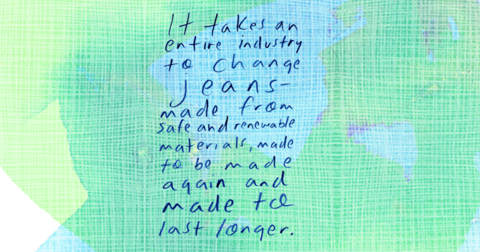 It takes an
entire industry
to change
jeans-
made from
safe and renewable
materials, made
to be made
again and
made to
last longer.